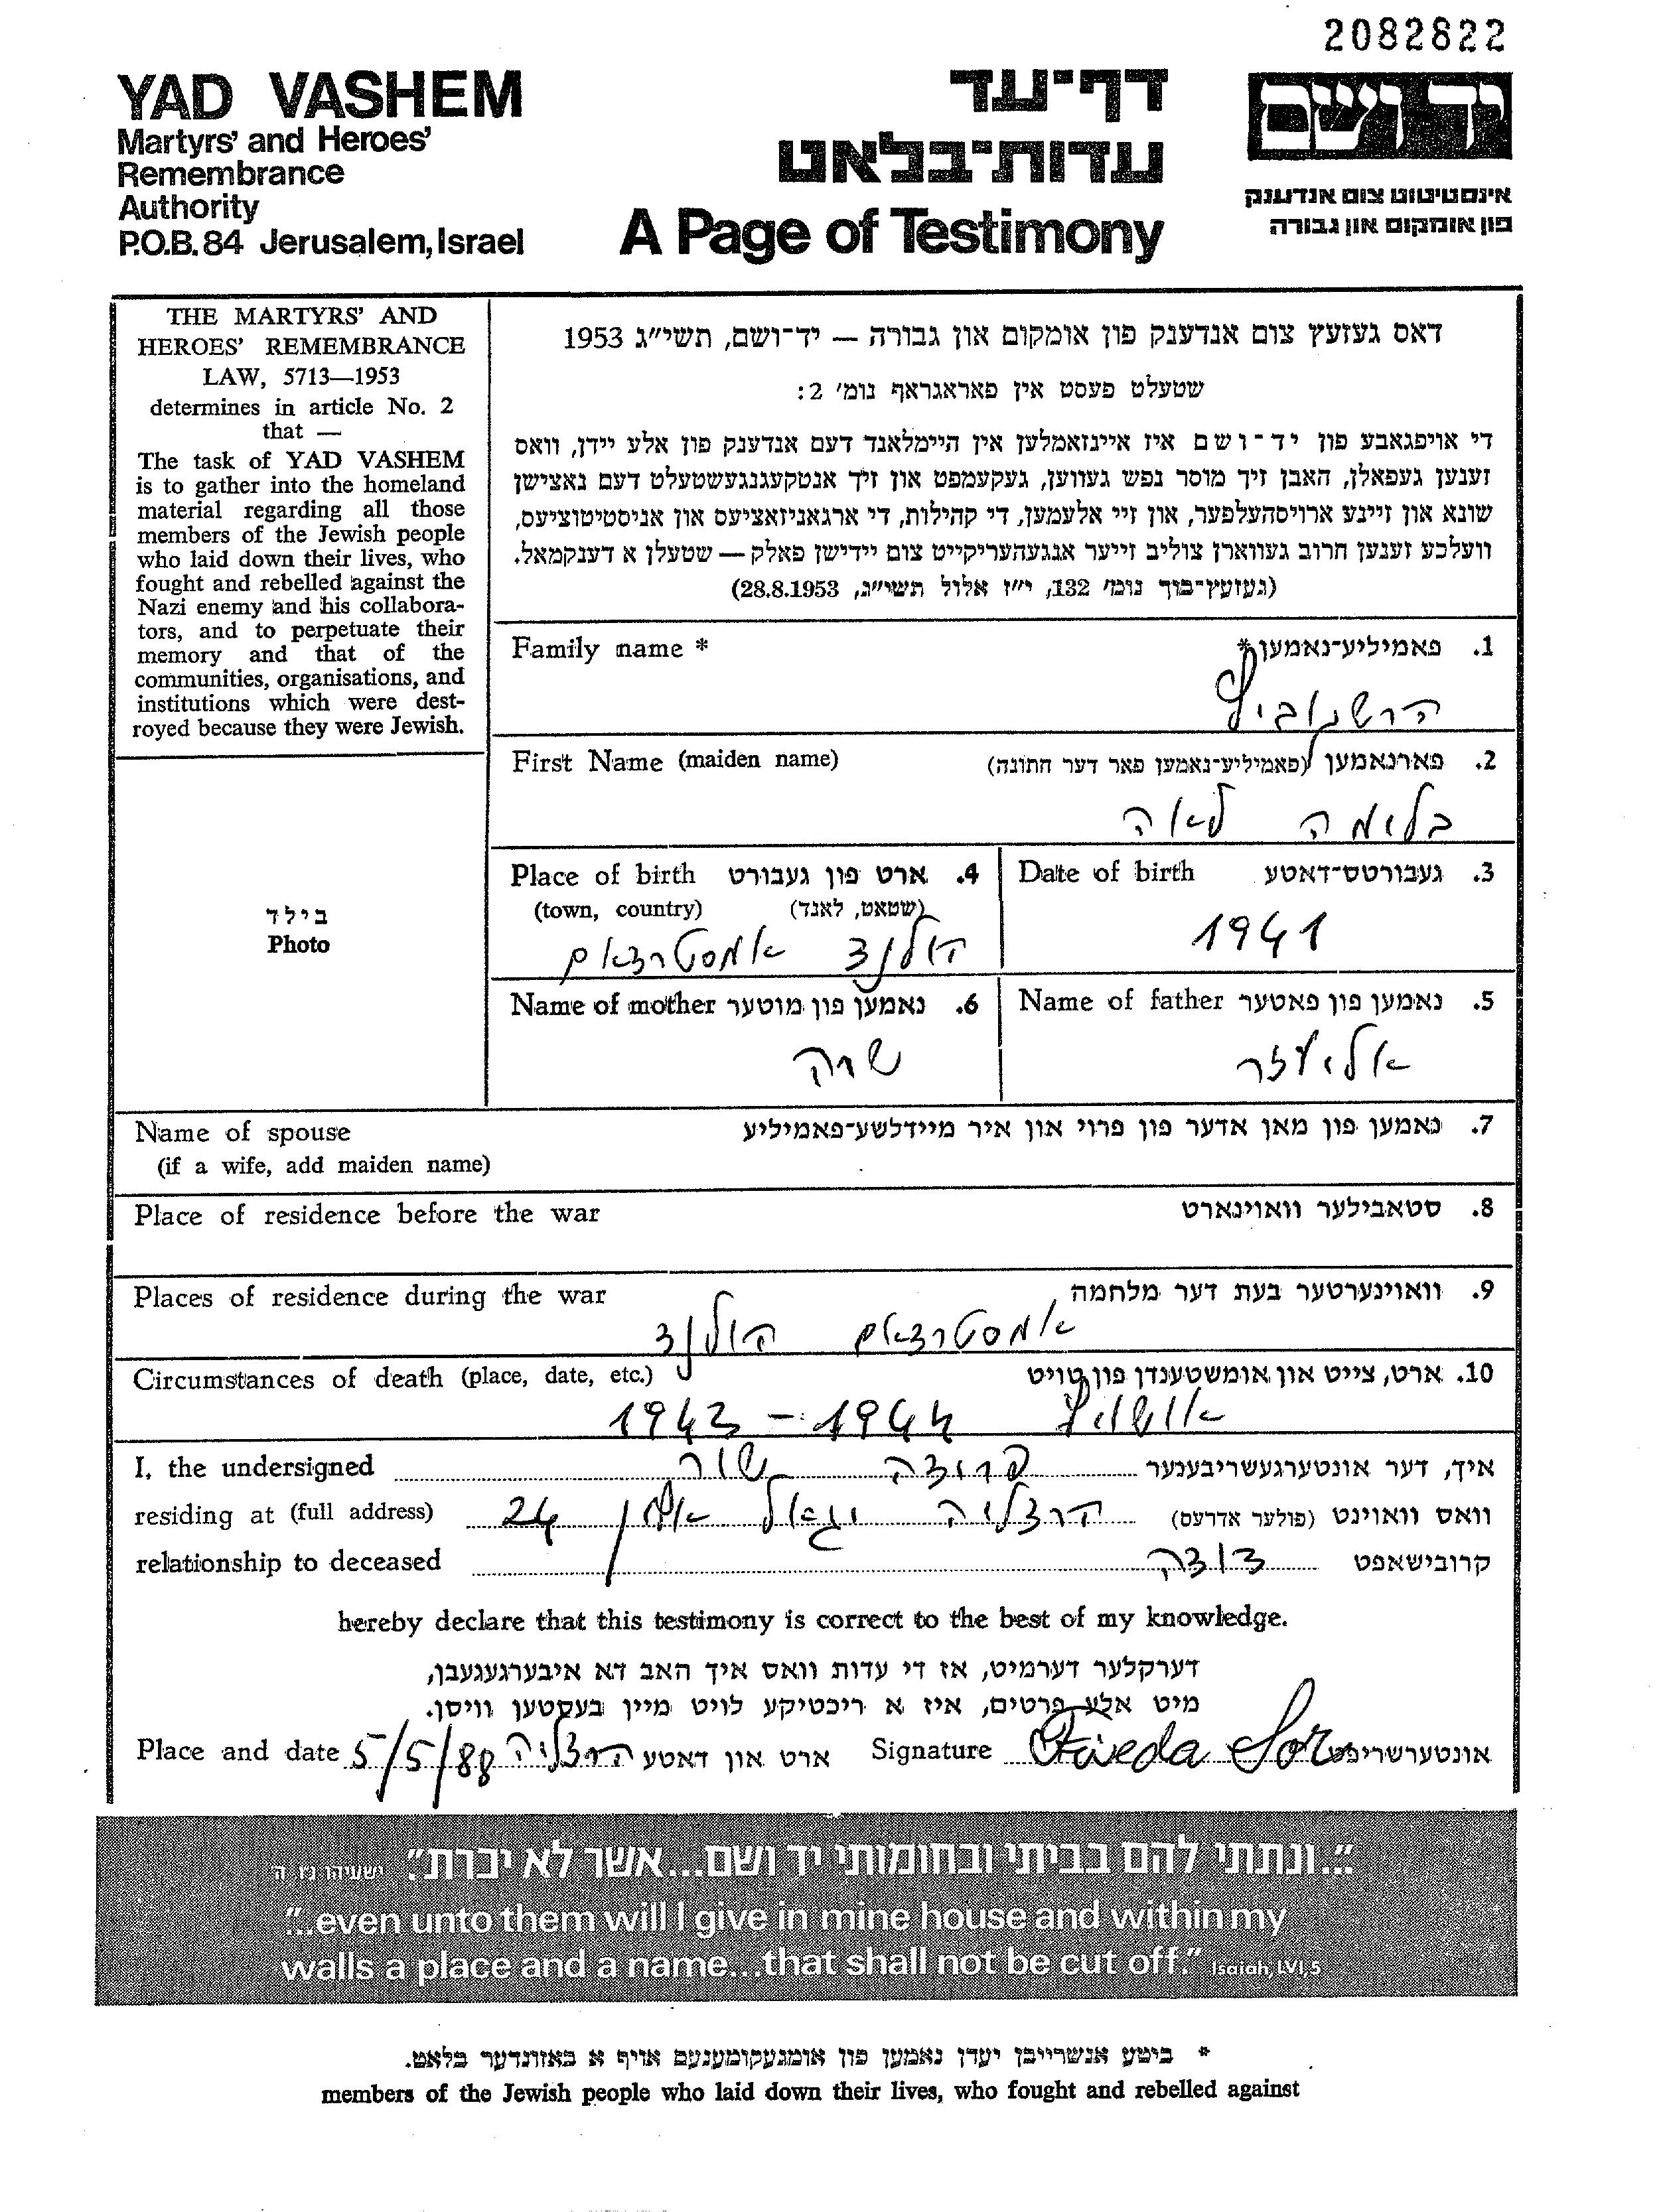 2082822
YAD VASHEM
Martyrs' and Heroes'
Remembrance
Authority
P.O.B. 84 Jerusalem, Israel
דף־עד
עדות־בלאט
A Page of Testimony
יד ושם
אינסטיטוט צום אנדענק
פון אומקום און גבורה
THE MARTYRS' AND
HEROES' REMEMBRANCE
LAW, 5713—1953
determines in article No. 2
that —
The task of YAD VASHEM
is to gather into the homeland
material regarding all those
members of the Jewish people
who laid down their lives, who
fought and rebelled against the
Nazi enemy and his collabora-
tors, and to perpetuate their
memory and that of the
communities, organisations, and
institutions which were dest-
royed because they were Jewish.
דאס געזעץ צום אנדענק פון אומקום און גבורה — יד־ושם, תשי״ג 1953
שטעלט פעסט אין פאראגראף נומ׳ 2:
די אויפגאבע פון יד־ושם איז איינזאמלען אין היימלאנד דעם אנדענק פון אלע יידן, וואס
זענען געפאלן, האבן זיך מוסר נפש געווען, געקעמפט און זיך אנטקעגנגעשטעלט דעם נאצישן
שונא און זיינע ארויסהעלפער, און זיי אלעמען, די קהילות, די ארגאניזאציעס און אניסטיטוציעס,
וועלכע זענען חרוב געווארן צוליב זייער אנגעהעריקייט צום יידישן פאלק — שטעלן א דענקמאל.
(געזעץ־בוך נומ׳ 132, י״ז אלול תשי״ג, 28.8.1953)
Family name * פאמיליע־נאמען* .1
הרשנוביץ
First Name (maiden name) פארנאמען (פאמיליע־נאמען פאר דער חתונה) .2
בלומה לאה
Place of birth ארט פון געבורט .4
(town, country) (שטאט, לאנד)
הולנד אמסטרדאם
Date of birth געבורטס־דאטע .3
1941
Name of mother נאמען פון מוטער .6
שרה
Name of father נאמען פון פאטער .5
אליעזר
בילד
Photo
Name of spouse נאמען פון מאן אדער פון פרוי און איר מיידלשע־פאמיליע .7
(if a wife, add maiden name)
Place of residence before the war סטאבילער וואוינארט .8
Places of residence during the war וואוינערטער בעת דער מלחמה .9
אמסטרדאם הולנד
Circumstances of death (place, date, etc.) ארט, צייט און אומשטענדן פון טויט .10
אושוויץ 1943 - 1944
I, the undersigned פרידה שור איך, דער אונטערגעשריבענער
residing at (full address) הרצליה יגאל אלון 24 וואס וואוינט (פולער אדרעס)
relationship to deceased דודה קרובישאפט
hereby declare that this testimony is correct to the best of my knowledge.
דערקלער דערמיט, אז די עדות וואס איך האב דא איבערגעגעבן,
מיט אלע פרטים, איז א ריכטיקע לויט מיין בעסטען וויסן.
Place and date 5/5/88 הרצליה ארט און דאטע Signature Frieda Sor אונטערשריפט
"...ונתתי להם בביתי ובחומותי יד ושם...אשר לא יכרת" ישעיהו נו, ה
"...even unto them will I give in mine house and within my
walls a place and a name...that shall not be cut off." Isaiah, LVI, 5
* ביטע אנשרייבן יעדן נאמען פון אומגעקומענעם אויף א באזונדער בלאט.
members of the Jewish people who laid down their lives, who fought and rebelled against